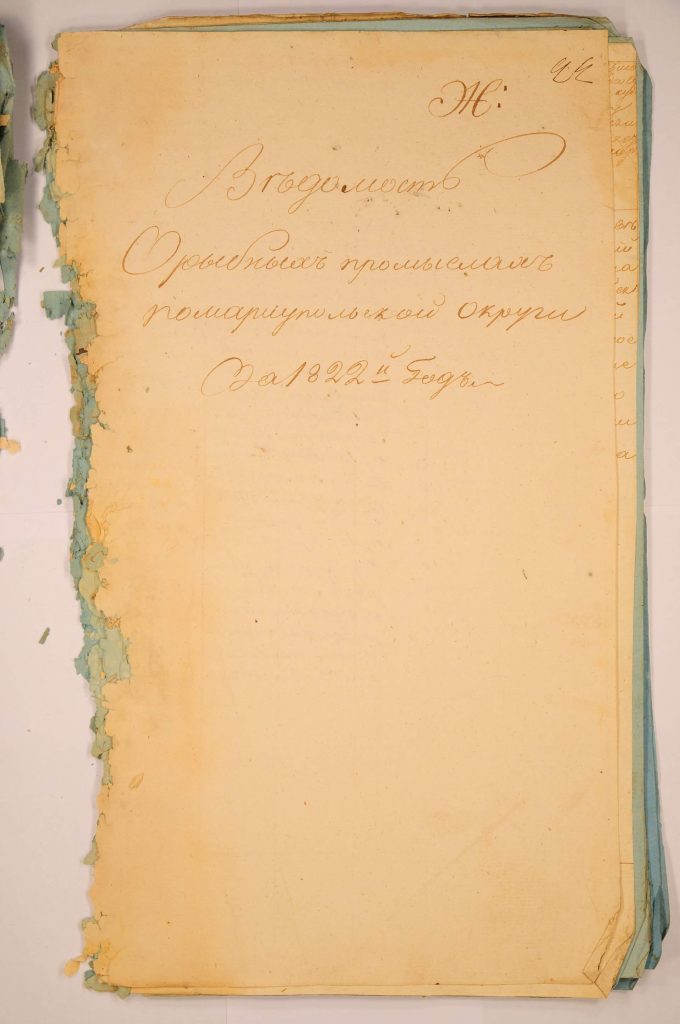 Ж:
Вѣдомость
О рыбныхъ промыслахъ
помариупольской округи
За 1822й Годъ